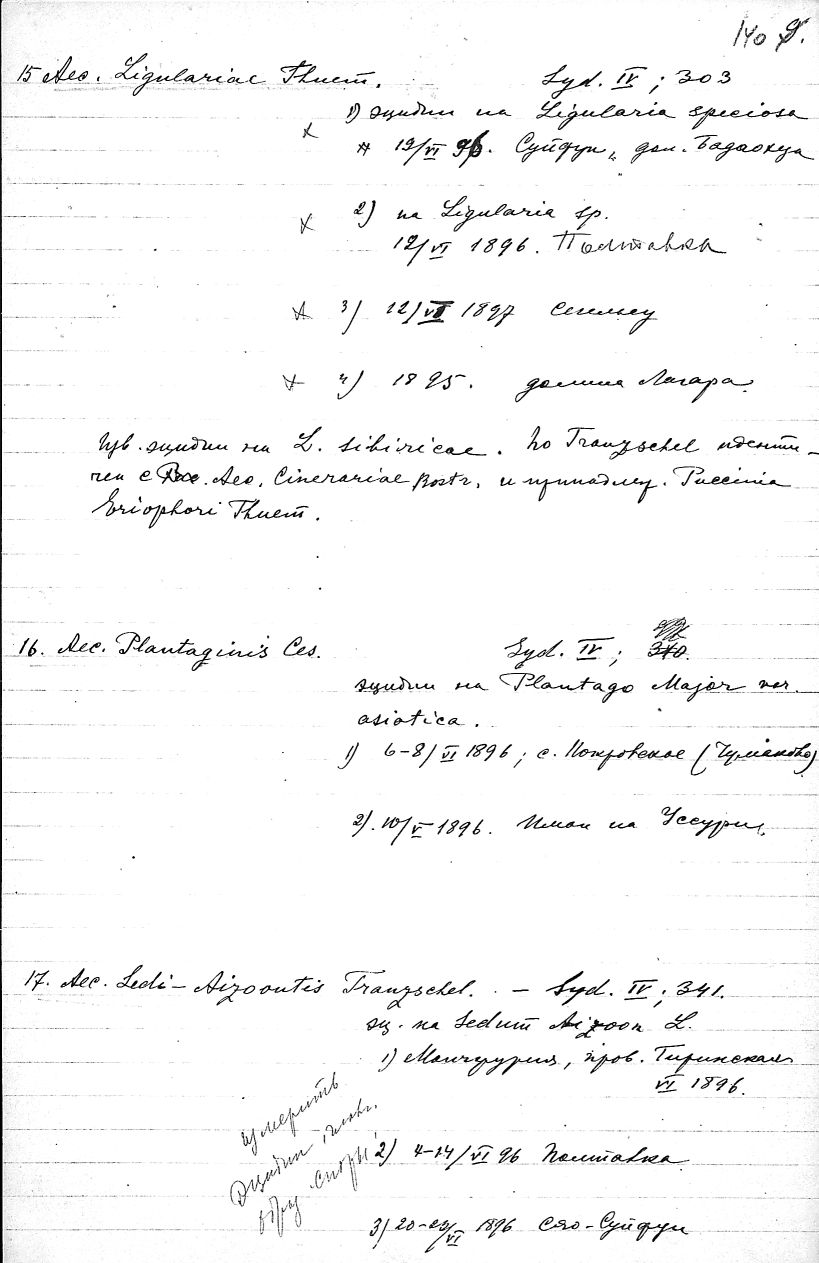 140
15 Aec. Ligulariae Thuem. Syd. IV ; 303
1) эцидии на Ligularia speciosa
19/VI 96. Суйфун, дол.
2) на Ligularia sp.
12/VI 1896. Полтавка
3) 12/VII 1897
4) 1895. долина Лагара.
Изв. эцидии на L. sibiricae. По Tranzschel иденти-
чен с Aec. Cinerariae Rostr. и принадлеж. Puccinia
Eriophori Thuem.
16. Aec. Plantaginis Ces. Syd. IV ;
эцидии на Plantago Major var.
asiatica.
1) 6-8/VI 1896 ; с. Покровское (Чумаково)
2). 10/V 1896. Иман на Уссури.
17. Aec. Sedi-Aizoontis Tranzschel. - Syd. IV ; 341.
эц. на Sedum Aizoon L.
1) Манчжурия, пров. Гиринская
VI 1896.
измерить
эцидии
споры
2) 4-14/VI 96 Полтавка
3) 20-23/VI 1896 Сяо-Суйфун